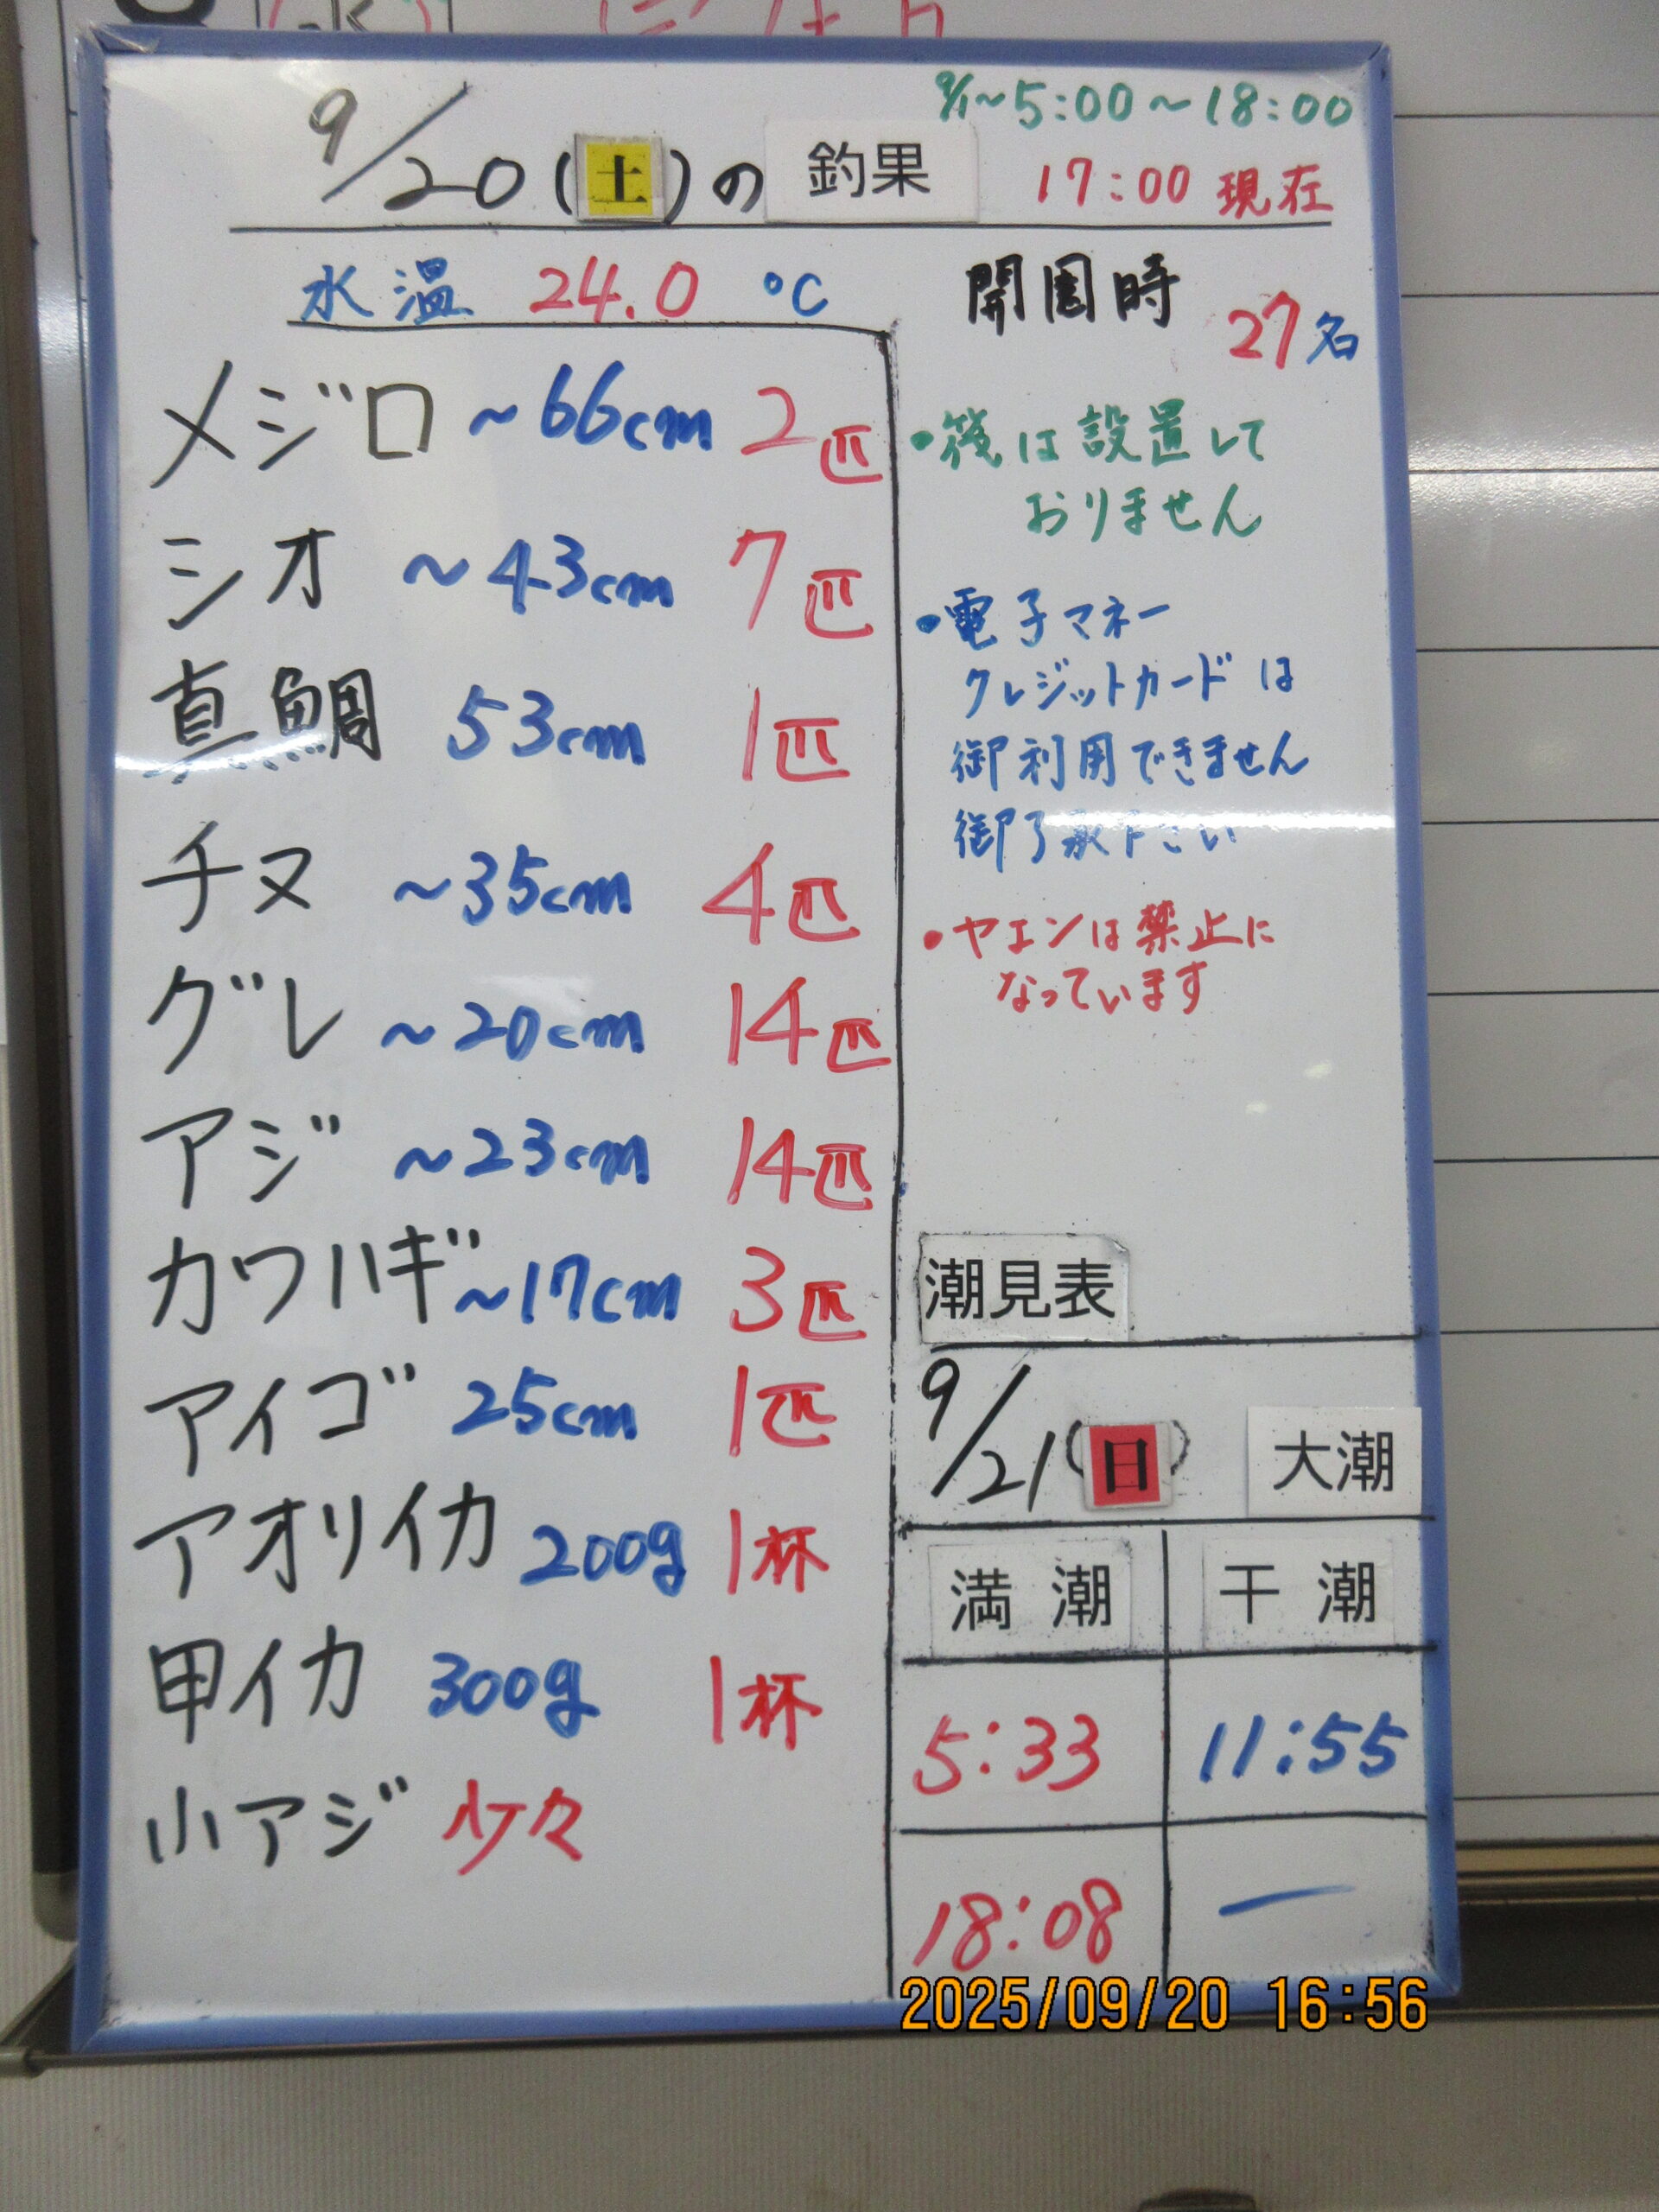 9/20(土)の 釣果
9/1~5:00~18:00
17:00 現在
水温 24.0 ℃
開園時
27名
メジロ ~66cm 2匹
シオ ~43cm 7匹
真鯛 53cm 1匹
チヌ ~35cm 4匹
グレ ~20cm 14匹
アジ ~23cm 14匹
カワハギ ~17cm 3匹
アイゴ 25cm 1匹
アオリイカ 200g 1杯
甲イカ 300g 1杯
小アジ 少々
・筏は設置して
おりません
・電子マネー
クレジットカードは
御利用できません
御了承下さい
・ヤエンは禁止に
なっています
潮見表
9/21(日) 大潮
満潮 干潮
5:33 11:55
18:08 —
2025/09/20 16:56